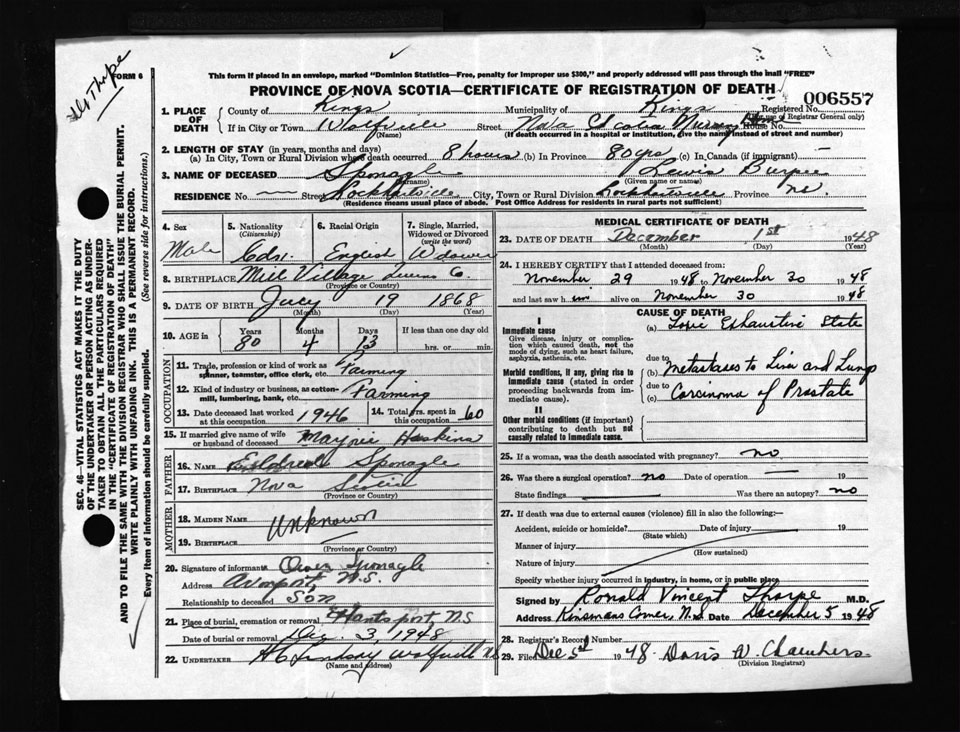 Thorpe
FORM 6
This form if placed in an envelope, marked "Dominion Statistics—Free, penalty for improper use $300," and properly addressed will pass through the mail "FREE"
PROVINCE OF NOVA SCOTIA—CERTIFICATE OF REGISTRATION OF DEATH
1. PLACE OF DEATH
County of Kings Municipality of Kings Registered No. 006557
(For use of Registrar General only)
If in City or Town Wolfville Street Nova Scotia House No.
(If death occurred in a hospital or institution, give the name instead of street and number)
2. LENGTH OF STAY (in years, months and days)
(a) In City, Town or Rural Division where death occurred 8 hours (b) In Province 80 yrs (c) In Canada (if immigrant) —
3. NAME OF DECEASED Sponagle Lewis Burpee
(Surname) (Given name or names)
RESIDENCE No. Street Lockhartville City, Town or Rural Division Lockhartville Province N.S.
(Residence means usual place of abode. Post Office Address for residents in rural parts not sufficient)
4. Sex Male
5. Nationality (Citizenship) Cdn.
6. Racial Origin English
7. Single, Married, Widowed or Divorced (write the word) Widower
8. BIRTHPLACE Mill Village Queens Co.
(Province or Country)
9. DATE OF BIRTH July 19 1868
(Month) (Day) (Year)
10. AGE in Years 80 Months 4 Days 13 If less than one day old hrs. or min.
OCCUPATION
11. Trade, profession or kind of work as spinner, teamster, office clerk, etc. Farming
12. Kind of industry or business, as cotton-mill, lumbering, bank, etc. Farming
13. Date deceased last worked at this occupation 1946 14. Total yrs. spent in this occupation 60
15. If married give name of wife or husband of deceased Haskins
FATHER
16. NAME Sponagle
17. BIRTHPLACE Nova Scotia
(Province or Country)
MOTHER
18. MAIDEN NAME Unknown
19. BIRTHPLACE —
(Province or Country)
20. Signature of informant Sponagle
Address Avonport, N.S.
Relationship to deceased Son
21. Place of burial, cremation or removal Hantsport, N.S
Date of burial or removal Dec. 3, 1948
22. UNDERTAKER Lindsay Wolfville
(Name and address)
MEDICAL CERTIFICATE OF DEATH
23. DATE OF DEATH December 1st 1948
(Month) (Day) (Year)
24. I HEREBY CERTIFY that I attended deceased from:
November 29 1948 to November 30 1948
and last saw him alive on November 30 1948
CAUSE OF DEATH
I
Immediate cause
Give disease, injury or complication which caused death, not the mode of dying, such as heart failure, asphyxia, asthenia, etc.
(a) Toxic Exhaustive State
due to
Morbid conditions, if any, giving rise to immediate cause (stated in order proceeding backwards from immediate cause).
(b) Metastases to Liver and Lungs
due to
(c) Carcinoma of Prostate
II
Other morbid conditions (if important) contributing to death but not causally related to immediate cause.
25. If a woman, was the death associated with pregnancy? no
26. Was there a surgical operation? no Date of operation 19
State findings Was there an autopsy? no
27. If death was due to external causes (violence) fill in also the following:—
Accident, suicide or homicide? Date of injury 19
(State which)
Manner of injury
(How sustained)
Nature of injury
Specify whether injury occurred in industry, in home, or in public place
Signed by Ronald Vincent Thorpe M.D.
Address Kinsmans Corner, N.S. Date December 5 1948
28. Registrar's Record Number
29. Filed Dec 5th 1948 Doris W. Chambers.
(Division Registrar)
SEC. 46—VITAL STATISTICS ACT MAKES IT THE DUTY
OF THE UNDERTAKER OR PERSON ACTING AS UNDER-
TAKER TO OBTAIN ALL THE PARTICULARS REQUIRED
IN THE "CERTIFICATE OF REGISTRATION OF DEATH"
AND TO FILE THE SAME WITH THE DIVISION REGISTRAR WHO SHALL ISSUE THE BURIAL PERMIT.
WRITE PLAINLY WITH UNFADING INK. THIS IS A PERMANENT RECORD.
Every item of information should be carefully supplied. (See reverse side for instructions.)